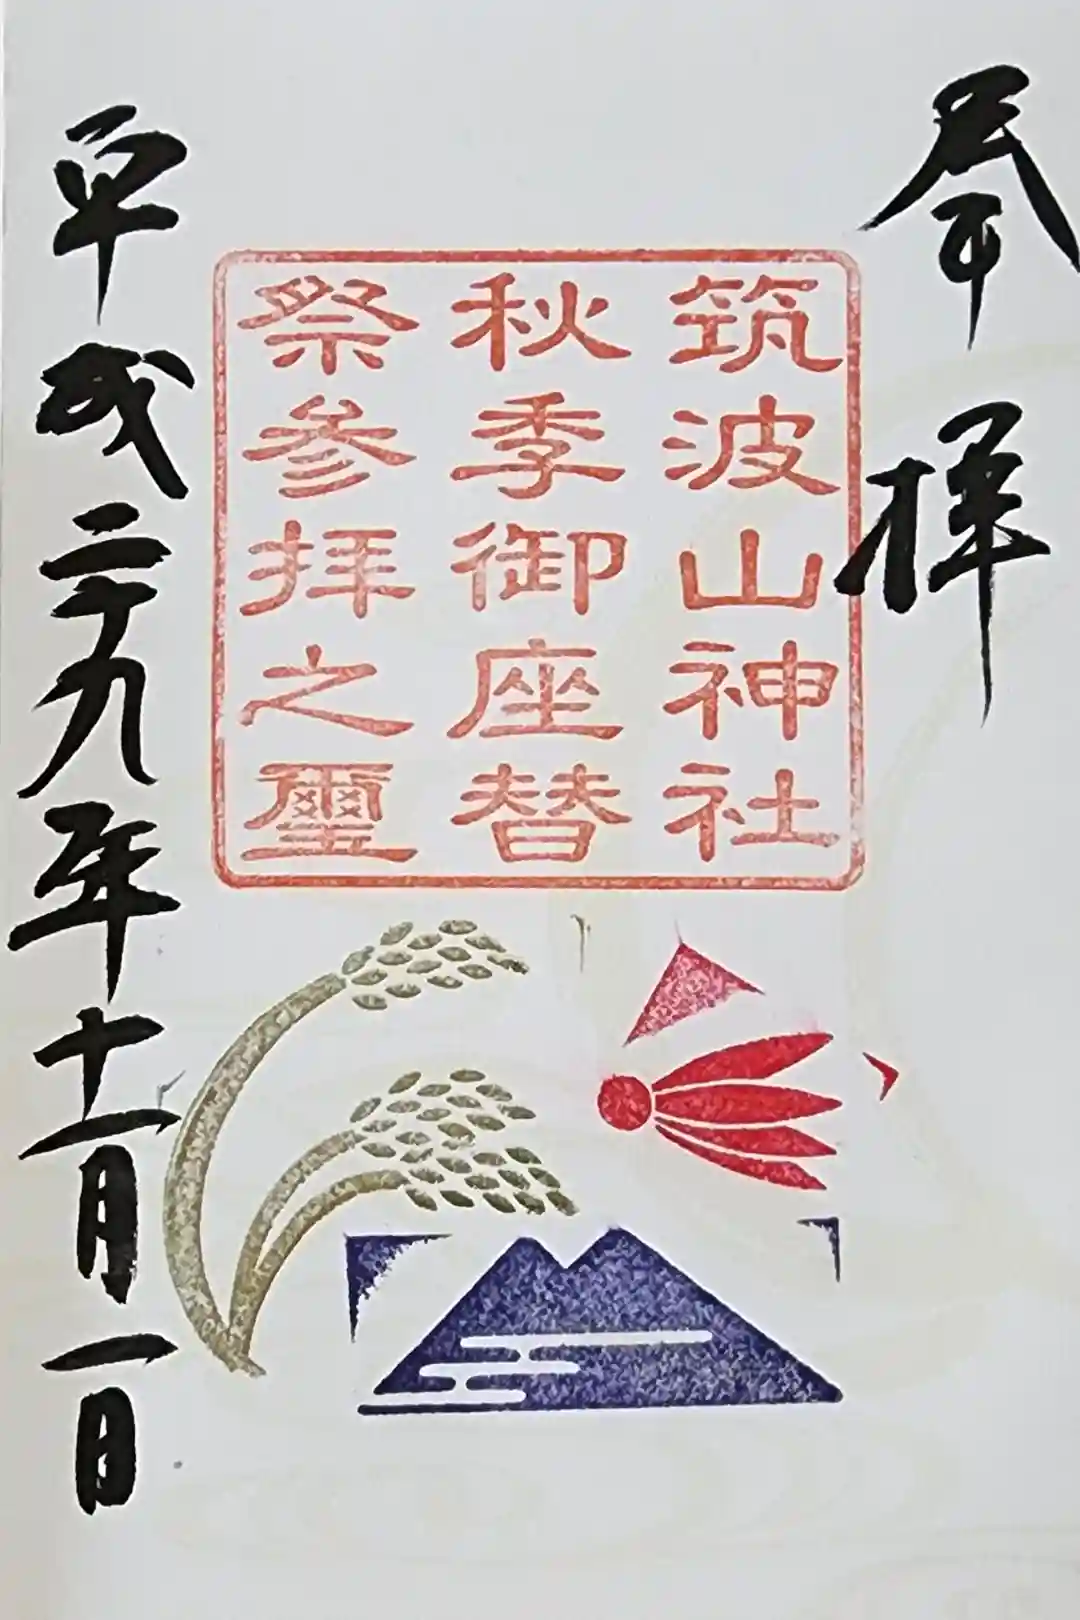 奉拝
筑波山神社
秋季御座替
祭参拝之璽
平成二十九年十一月一日